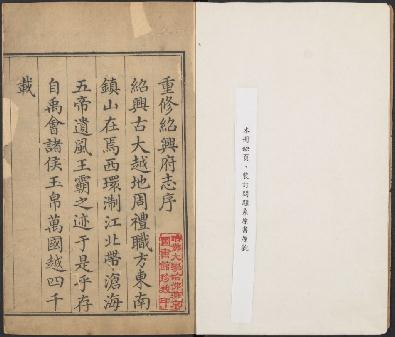 重修紹興府志序
紹興古大越地周禮職方東南
鎮山在焉西環淛江北帶滄海
五帝遺風王霸之迹于是乎存
自禹會諸侯玉帛萬國越四千
載
本冊缺頁、裝訂問題系原書原貌